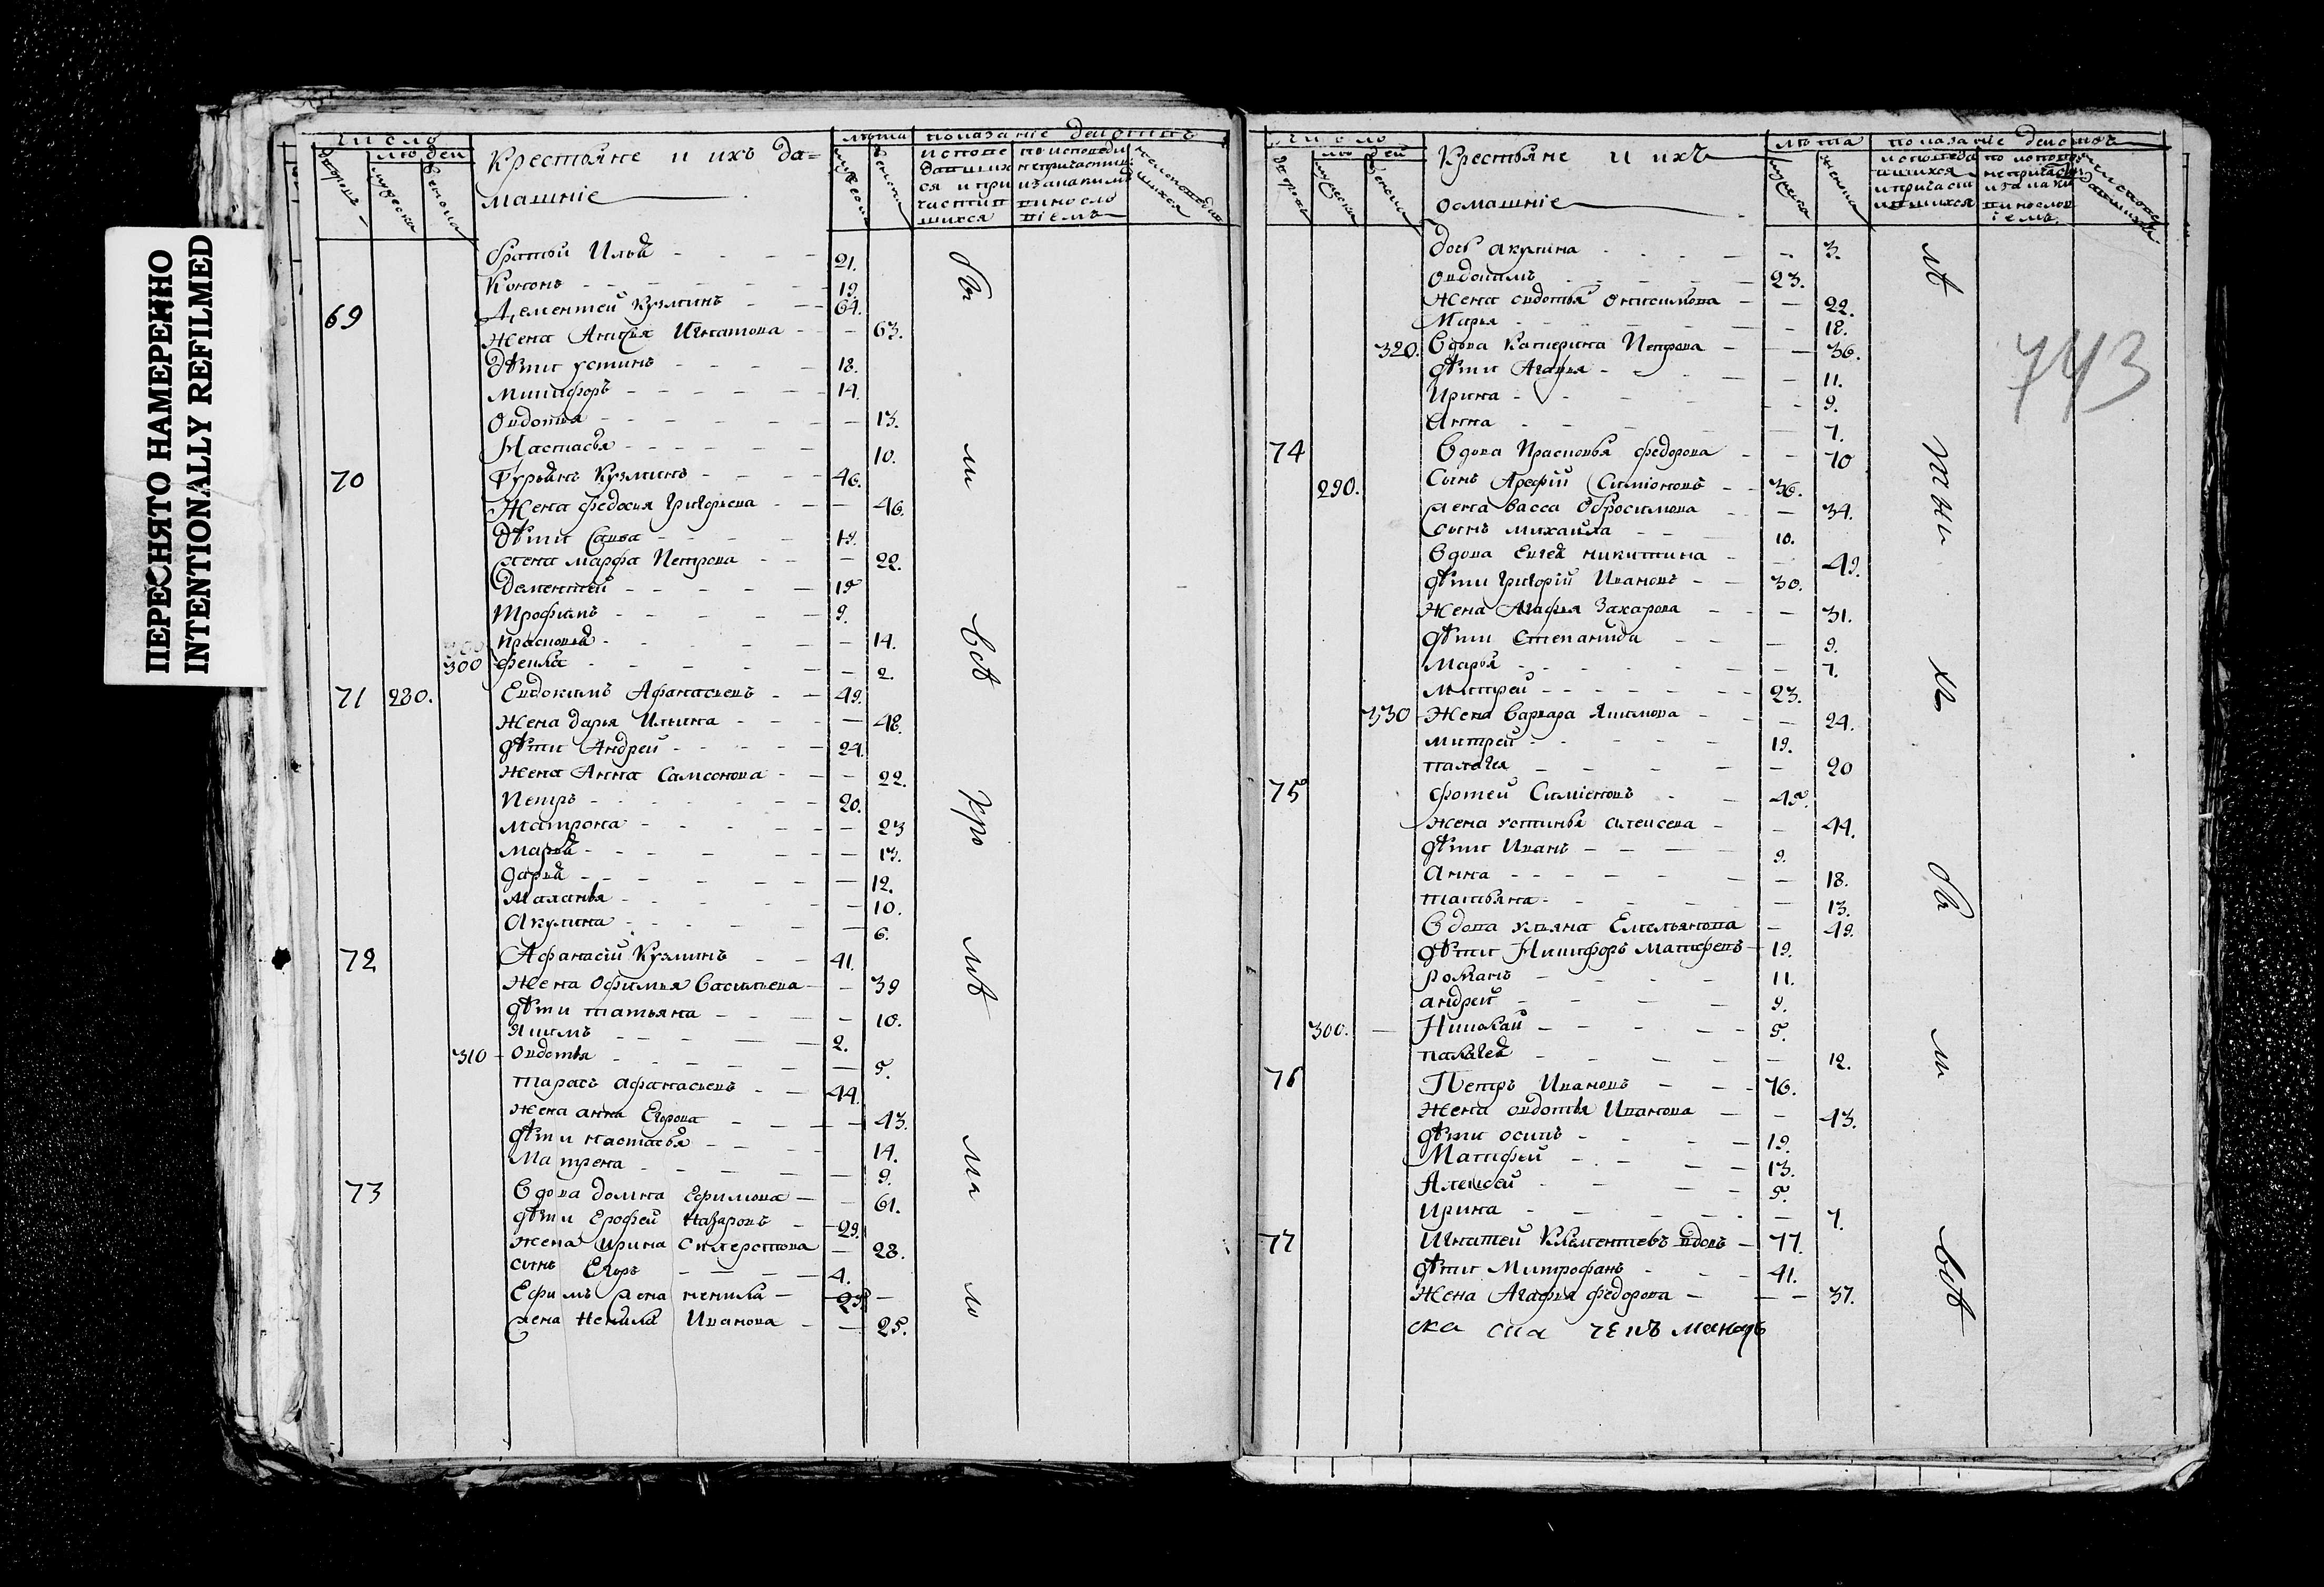 ПЕРЕСНЯТО НАМЕРЕННО
INTENTIONALLY REFILMED
число
людей
Крестьяне и ихъ до=
машніе
лѣта
показаніе действъ
братьи Илья 21.
Кононъ 19
69 Дементей Кузминъ 64.
Жена Анисья Игнатова 63.
дѣти устинъ 18.
Никифоръ 14.
Овдотья 13.
Настасья 10.
70 Гурьянъ Кузминъ 46.
Жена федосья григорьева 46.
дѣти Савва 19.
жена марфа Петрова 22.
Дементей 15
Трофимъ 9.
Прасковья 14.
300 фекла 2.
71 280. Евдокимъ Афанасьевъ 49.
Жена дарья Ильина 48.
дѣти Андрей 24.
Жена Анна Самсонова 22.
Петръ 20.
матрона 23
Марья 13.
дарья 12.
Маланья 10.
Акулина 6.
72 Афанасій Кузминъ 41.
Жена Офимья Васильева 39
дѣти татьяна 10.
Якимъ 2.
310 Овдотья 5.
тарасъ афанасьевъ 44.
Жена анна Егорова 43.
дѣти настасья 14.
Матрена 9.
73 Вдова домна Ефимова 61.
дѣти Ерофей Назаровъ 29.
Жена ирина Силерстова 28.
сынъ Егоръ 4.
Ефимъ жена ненила 25.
жена Ненила Иванова 25.
бы
ли
всѣ
кро
мѣ
ма
ло
число
людей
Крестьяне и ихъ
домашніе
лѣта
показаніе действъ
743
дочь акулина 3.
Овдокимъ 23.
Жена овдотья Онисимова 22.
Марья 18.
320. Вдова Катерина Петрова 36.
дѣти Агафья 11.
Ирина 9.
Анна 7.
74 Вдова Прасковья федорова 70
290. Сынъ Арефій Симіоновъ 36.
жена васса Обросимова 34.
сынъ михайла 10.
Вдова Евгея никитина 49.
дѣти григорій Ивановъ 30.
Жена Агафья Захарова 31.
дѣти Степанида 9.
Марья 7.
Митрей 23.
330 Жена Варвара Якимова 24.
митрей 19.
палагея 20
75 фотей Симіоновъ 45.
Жена устинья алексева 44.
дѣти Иванъ 9.
Анна 18.
татьяна 13.
Вдова ульяна Емельянова 49.
дѣти Никифоръ Матвфевъ 19.
Романъ 11.
андрей 9.
300. Николай 5.
палагея 12.
76 Петръ Ивановъ 76.
Жена овдотья Иванова 43.
дѣти осипъ 19.
Матвфей 13.
Алексей 5.
Ирина 7.
77 Игнатей Клементевъ вдовъ 77.
дѣти Митрофанъ 41.
Жена Агафья федорова 37.
лѣ
тны
хъ
бы
ли
всѣ